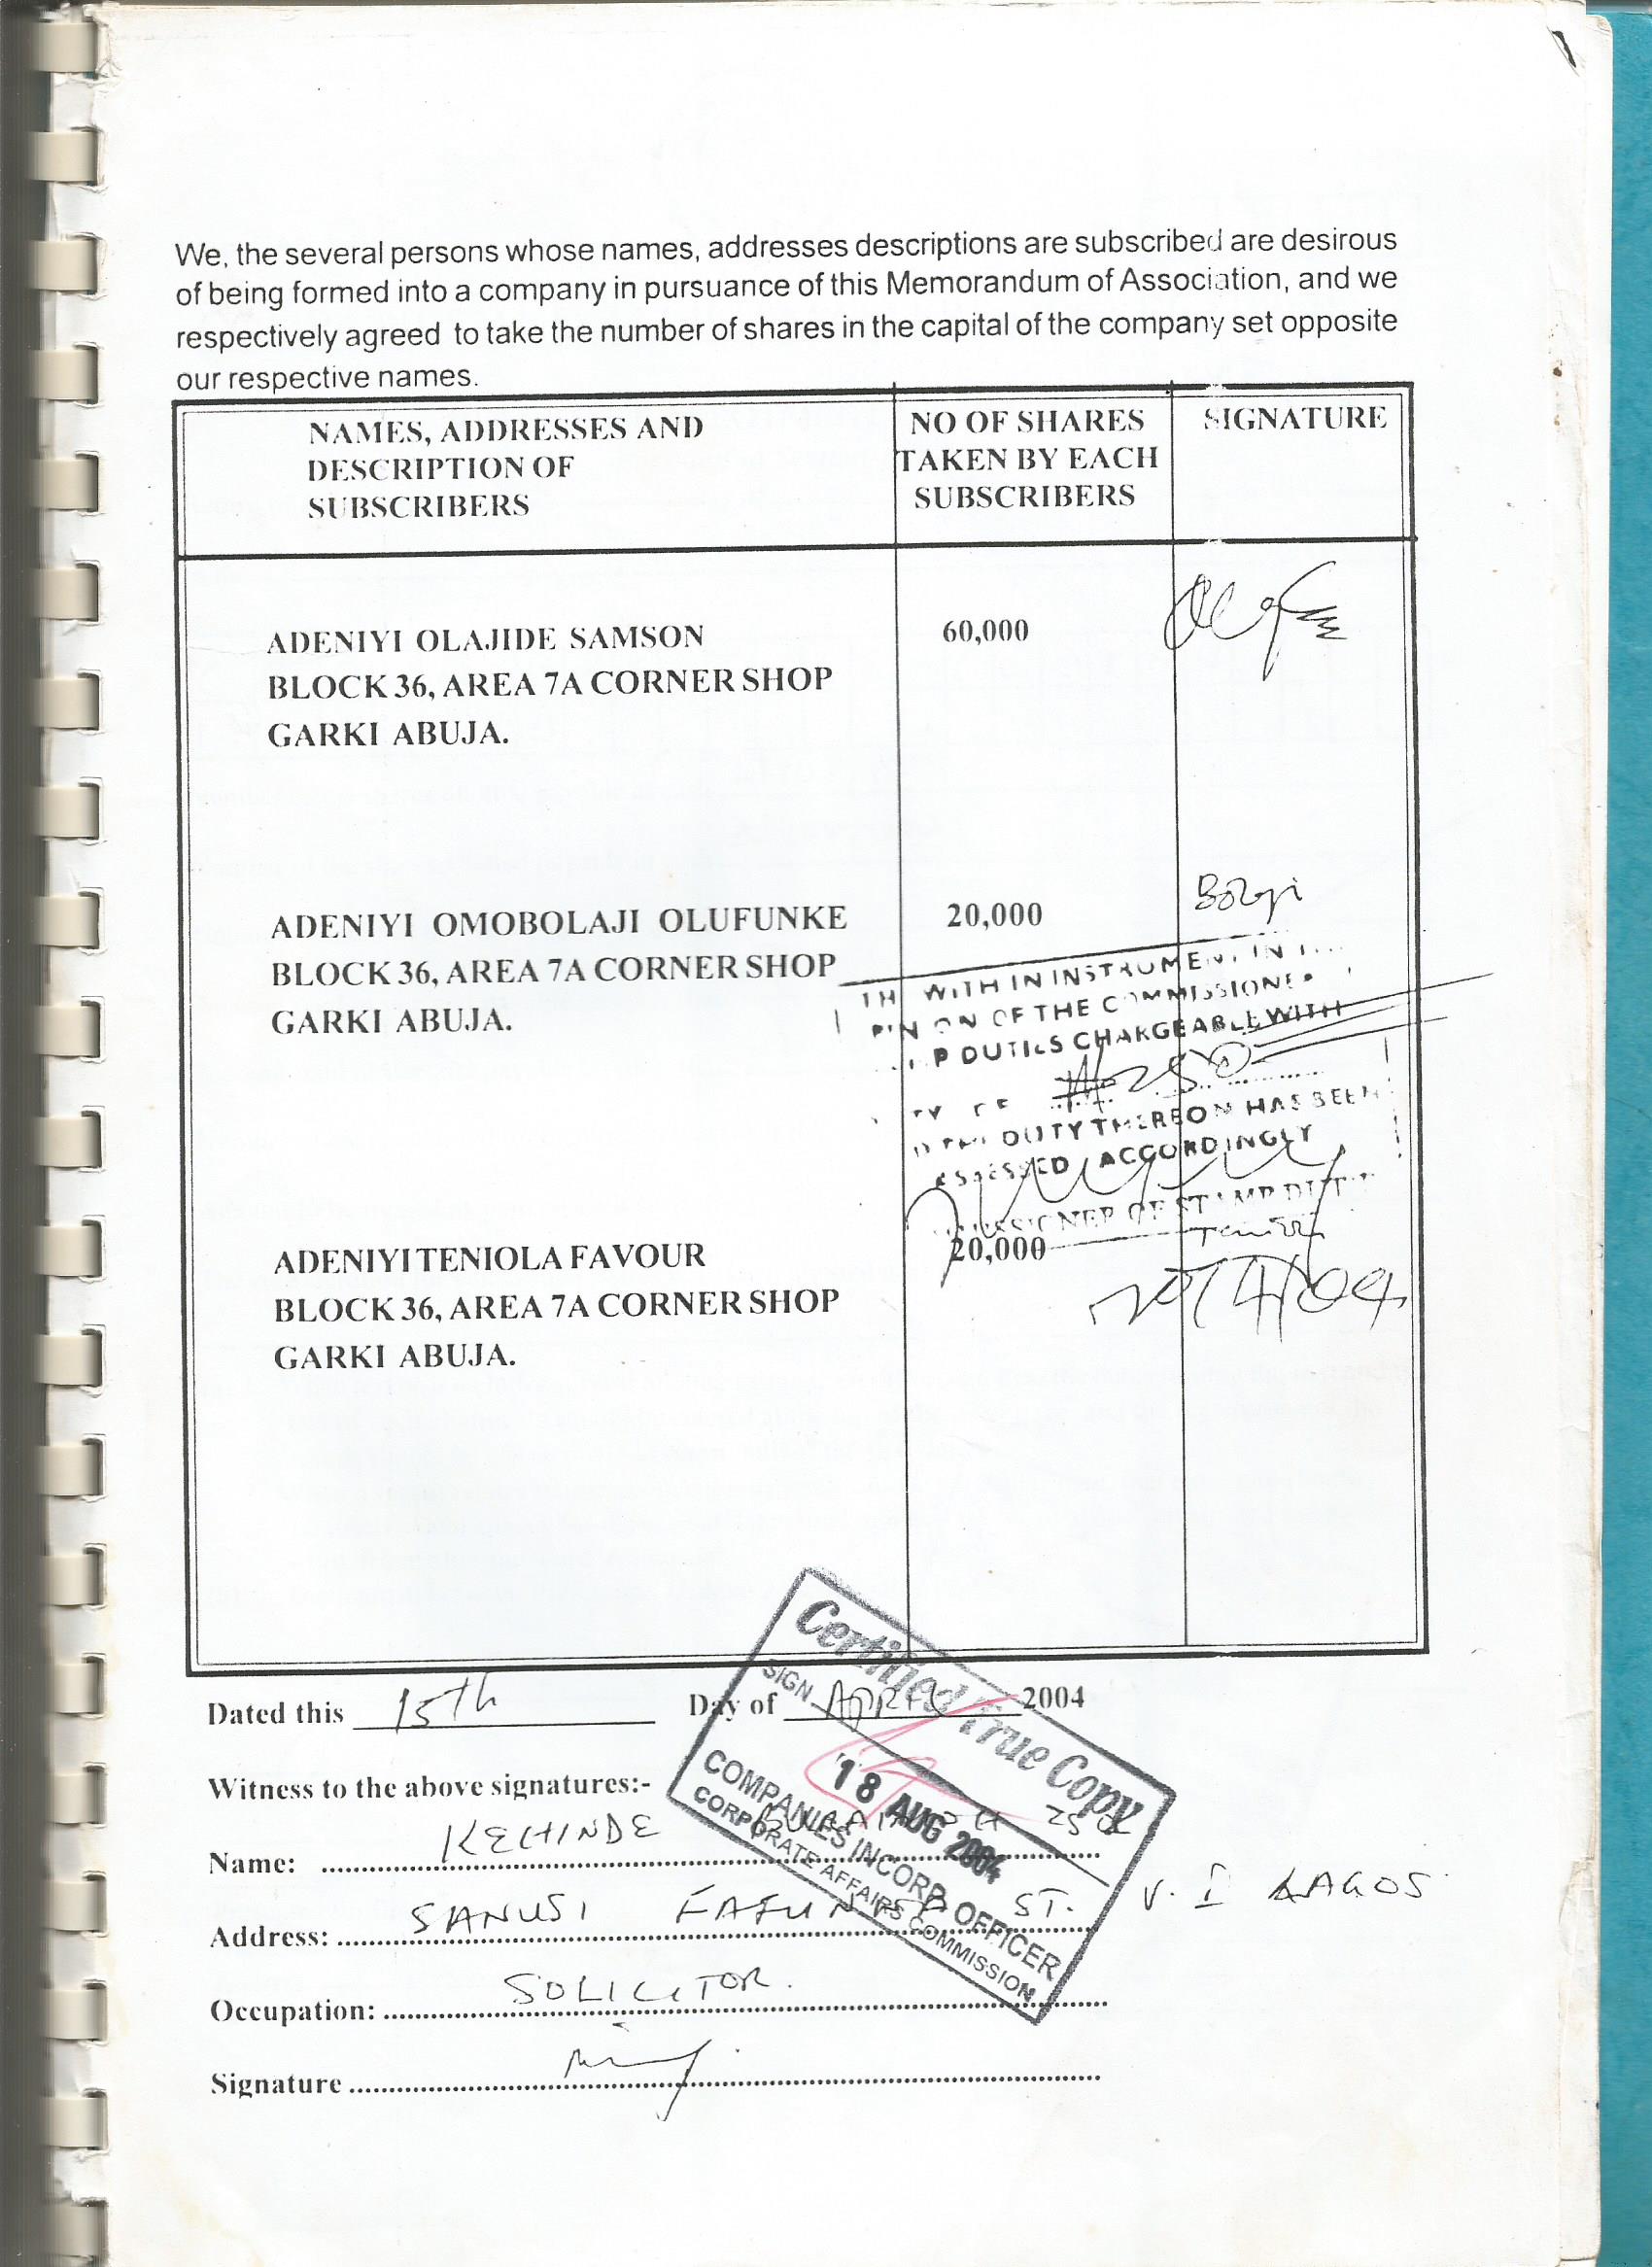 We, the several persons whose names, addresses descriptions are subscribed are desirous
of being formed into a company in pursuance of this Memorandum of Association, and we
respectively agreed to take the number of shares in the capital of the company set opposite
our respective names.
NAMES, ADDRESSES AND
DESCRIPTION OF
SUBSCRIBERS
NO OF SHARES
TAKEN BY EACH
SUBSCRIBERS
SIGNATURE
ADENIYI OLAJIDE SAMSON
BLOCK 36, AREA 7A CORNER SHOP
GARKI ABUJA.
60,000
ADENIYI OMOBOLAJI OLUFUNKE
BLOCK 36, AREA 7A CORNER SHOP
GARKI ABUJA.
20,000
WITHIN INSTRUMENT IN
OF THE COMMISSIONER
DUTIES CHARGEABLE WITH
₦250
DUTY THEREON HAS BEEN
ASSESSED ACCORDINGLY
OF STAMP
ADENIYI TENIOLA FAVOUR
BLOCK 36, AREA 7A CORNER SHOP
GARKI ABUJA.
20,000
20/4/04
Dated this 15th Day of APRIL 2004
Witness to the above signatures:-
Name: KEHINDE
Address: SANUSI FAFUNWA ST. V. I LAGOS
Occupation: SOLICITOR.
Signature
Certified True Copy
SIGN
18 AUG 2004
COMPANIES INCORP OFFICER
CORPORATE AFFAIRS COMMISSION